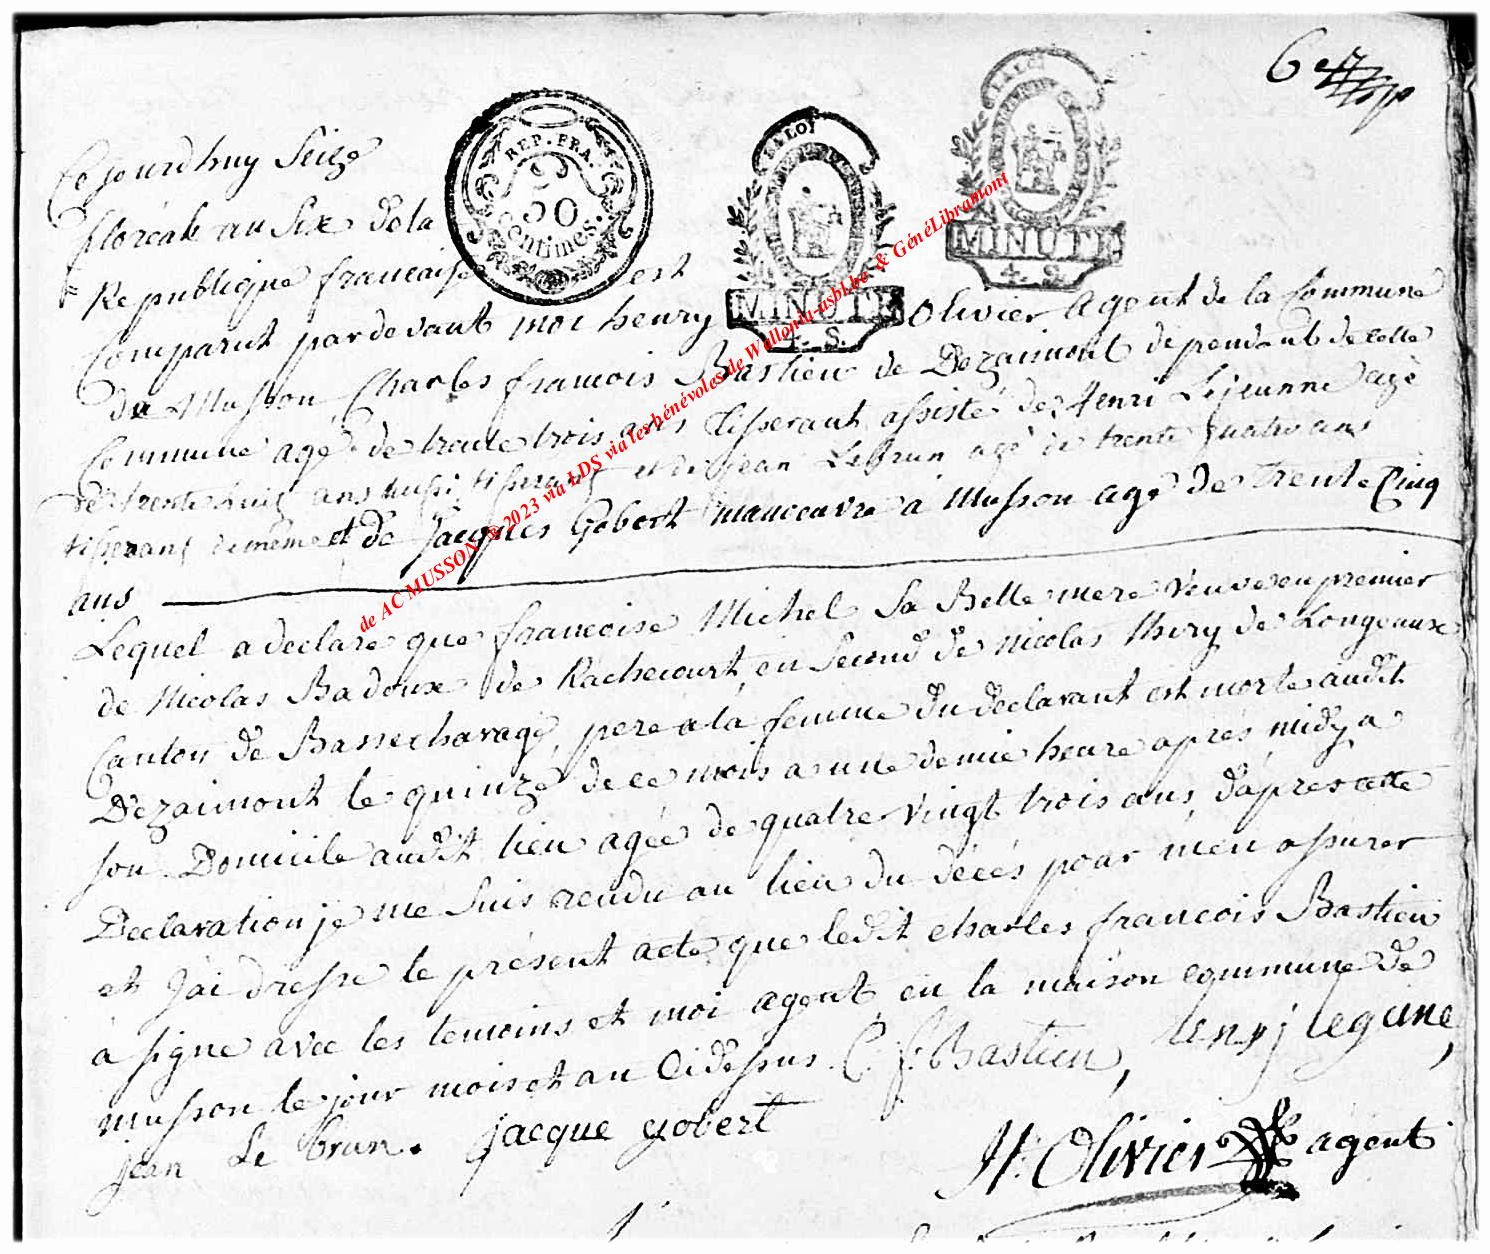 6e
REP. FRA.
50
centimes.
LA LOI
MINUTE
4. S.
LA LOI
MINUTE
4. S.
Cejourdhuy Seize
floréale an Six de la
Republique francaise est
Comparut pardevant moi henry Olivier Agent de la Commune
de Musson Charles francois Bastien de Dezaimont dependant de celle
Commune agé de trente trois ans tisserant assisté de Henri Lejeunne agé
de trente huit ans aussi tisserant et de jean Lebrun agé de trente quatre ans
tisserant de même et de Jacques Gobert manoeuvre à Musson agé de trente Cinq
ans
Lequel a declaré que francoise Michel Sa Belle mere veuve en premier
de Nicolas Badoux de Rachecourt en Second de Nicolas thiry de Longeaux
Canton de Bassecharage, pere a la femme du declarant est morte audit
Dezaimont le quinze de ce mois a une demie heure après midy a
son Domicile audit lieu agée de quatre vingt trois ans, d'après cette
Declaration je me Suis rendu au lieu du décés pour m'en assurer
et J'ai dressé le présent acte que ledit charles francois Bastien
à signé avec les temoins et moi agent en la maison commune de
musson le jour mois et an Cidessus. C. f. Bastien, henrj legune,
jean Le brun. jacque gobert
H: Olivier agent
de AC MUSSON © 2023 via LDS via les bénévoles de Wallonia-asbl.be & GénéLibramont